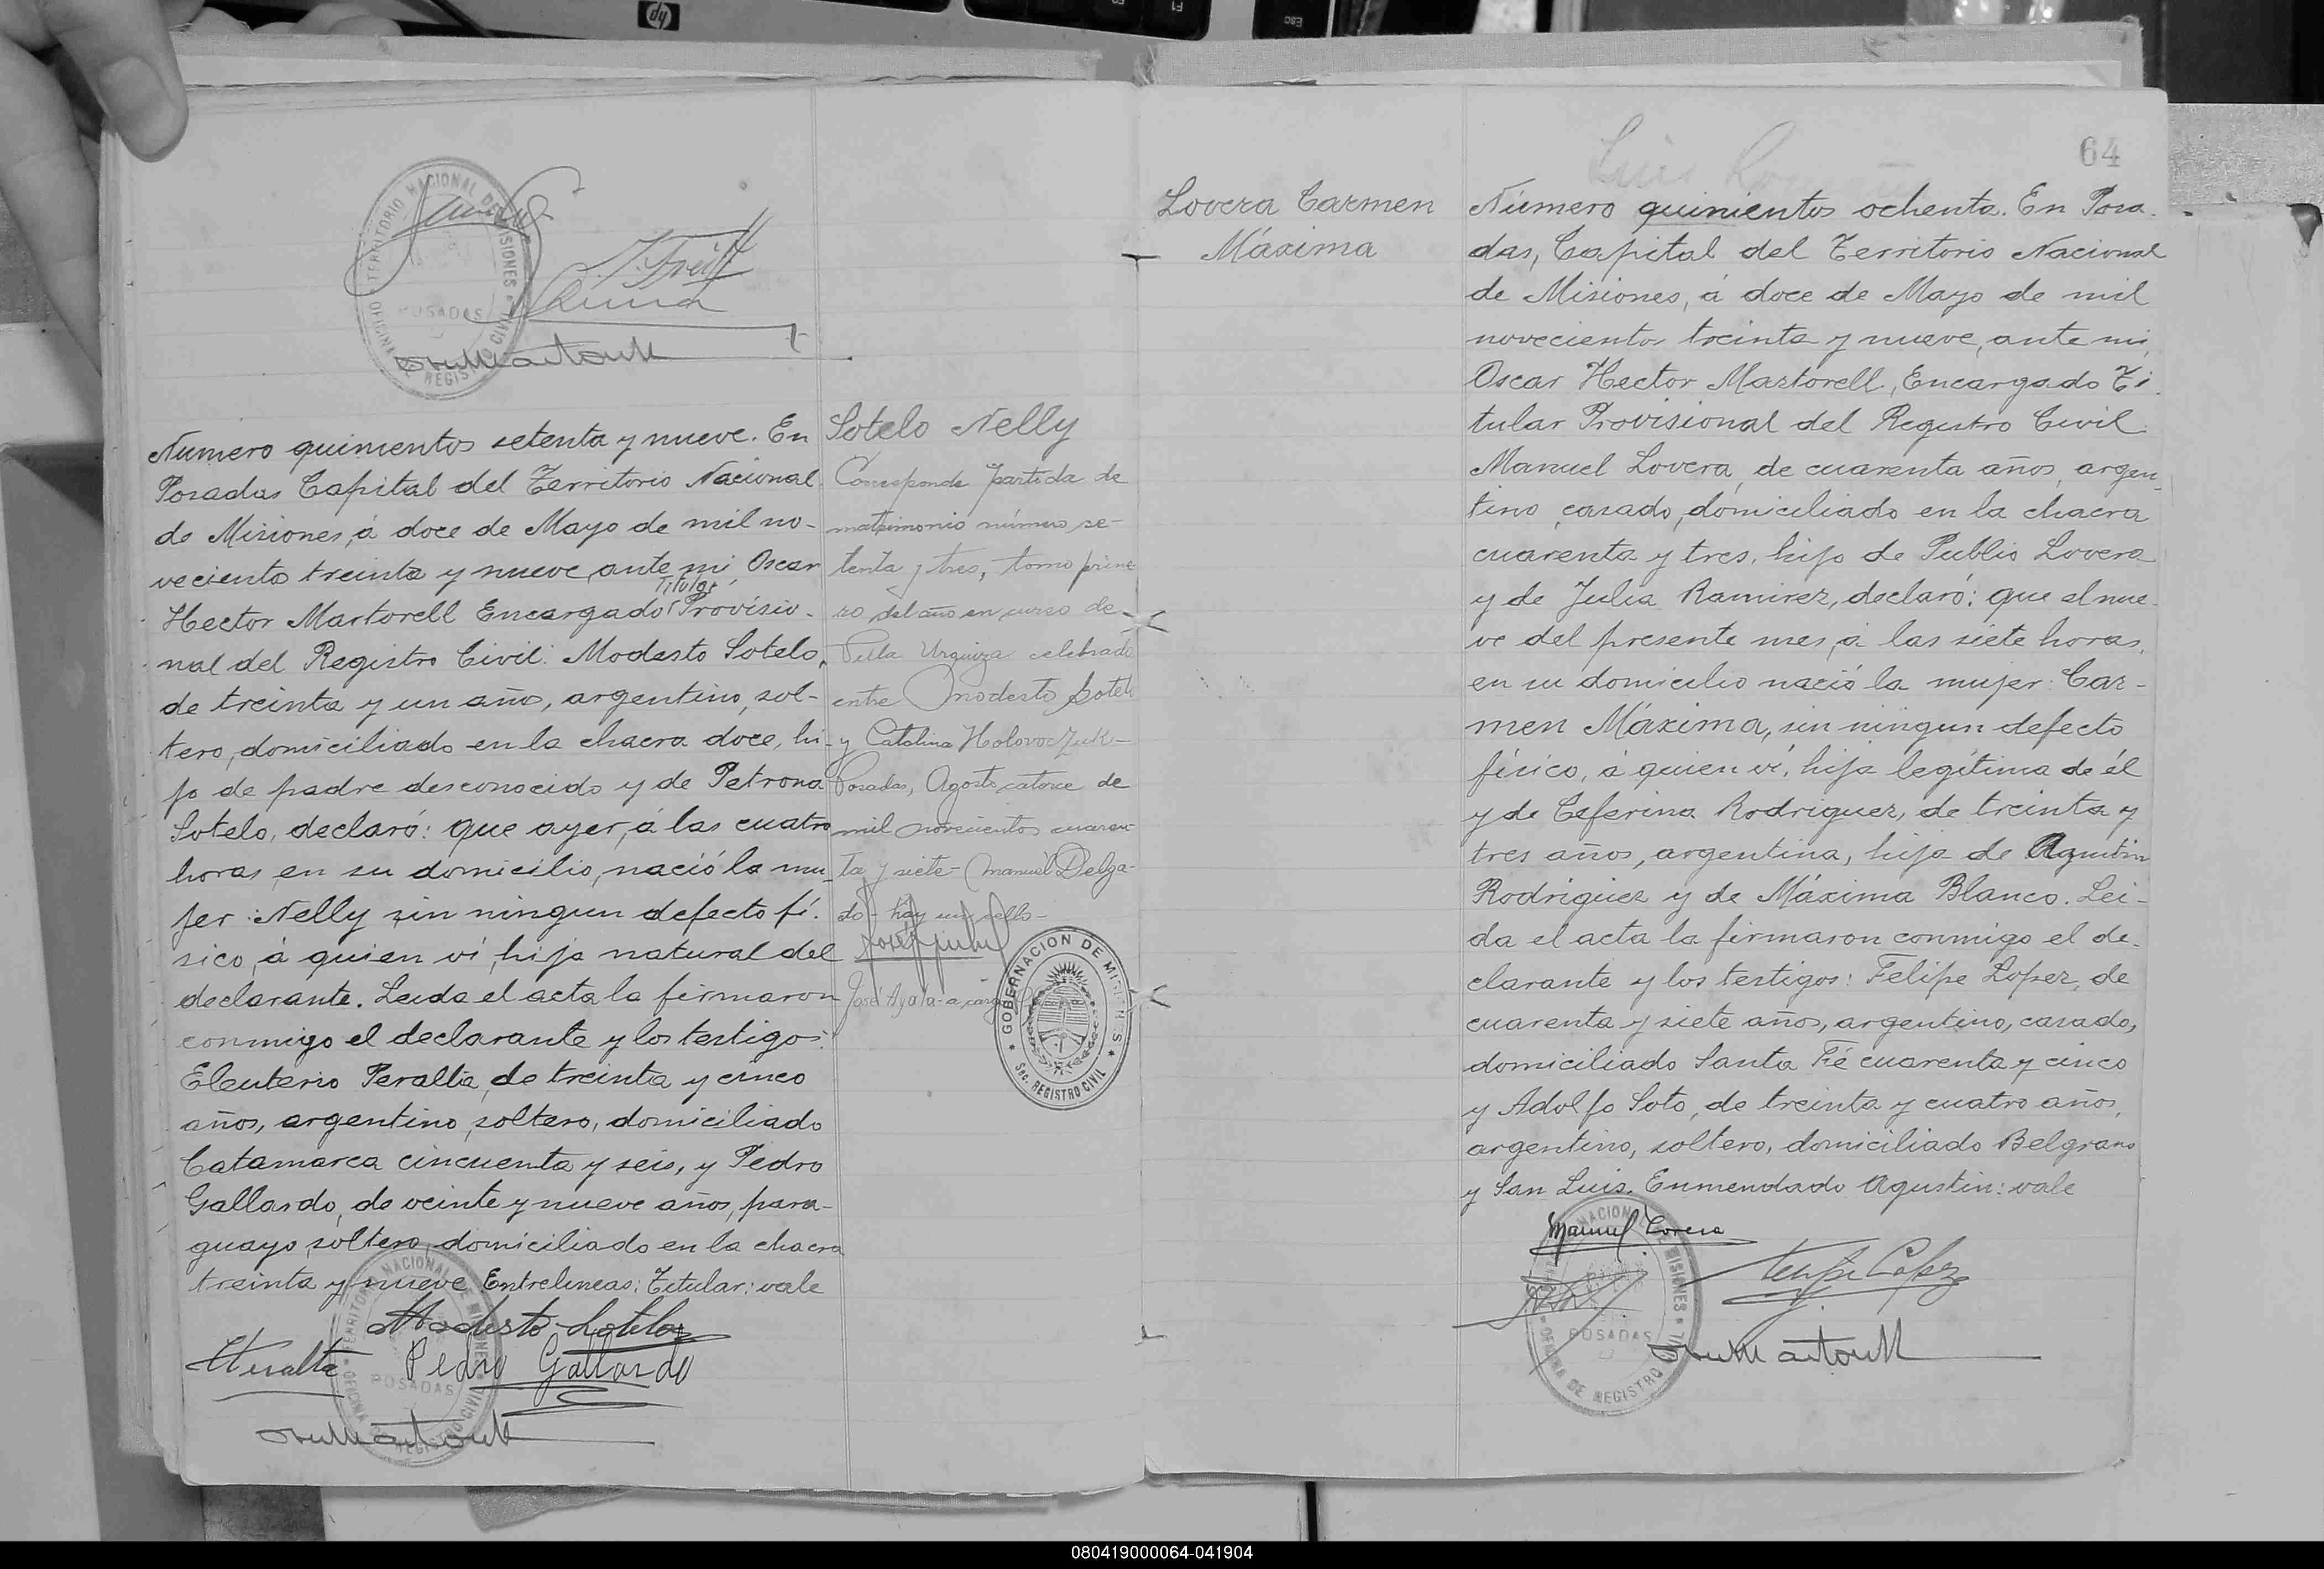 Numero quinientos setenta y nueve. En
Posadas Capital del Territorio Nacional
de Misiones, á doce de Mayo de mil no-
veciento treinta y nueve, ante mi Oscar
Titular
Hector Martorell Encargado Provisio-
nal del Registro Civil: Modesto Sotelo,
de treinta y un año, argentino, sol-
tero, domiciliado en la chacra doce, hi-
jo de padre desconocido y de Petrona
Sotelo, declaró: que ayer, á las cuatro
horas, en su domicilio, nació la mu-
jer: Nelly sin ningun defecto fí-
sico, á quien ví, hija natural del
declarante. Leida el acta la firmaron
conmigo el declarante y los testigos:
Eleuterio Peralta, de treinta y cinco
años, argentino, soltero, domiciliado
Catamarca cincuenta y seis, y Pedro
Gallardo, de veinte y nueve años, para-
guayo, soltero, domiciliado en la chacra
treinta y nueve Entrelineas: Titular: vale
Modesto Sotelo
EPeralta Pedro Gallardo
Sotelo Nelly
Corresponde partida de
matrimonio número se-
tenta y tres, tomo prime
ro del año en curso de
Villa Urquiza celebrado
entre Modesto Sotelo
y Catalina Holovoczuk-
Posadas, Agosto catorce de
mil novecientos cuaren-
ta y siete- Manuel Delga-
do- hay un sello-
José Ayala- a cargo
GOBERNACION DE MISIONES
Sec. REGISTRO CIVIL
TERRITORIO NACIONAL DE MISIONES
OFICINA DE REGISTRO CIVIL
POSADAS
64
Lovera Carmen
Máxima
Número quinientos ochenta. En Posa-
das, Capital del Territorio Nacional
de Misiones, á doce de Mayo de mil
noveciento treinta y nueve, ante mi,
Oscar Hector Martorell, Encargado Ti-
tular Provisional del Registro Civil:
Manuel Lovera, de cuarenta años, argen-
tino, casado, domiciliado en la chacra
cuarenta y tres, hijo de Publio Lovera
y de Julia Ramirez, declaró: que el nue-
ve del presente mes, á las siete horas,
en su domicilio nació la mujer: Car-
men Máxima, sin ningun defecto
físico, á quien ví, hija legítima de él
y de Ceferina Rodriguez, de treinta y
tres años, argentina, hija de Agustin
Rodriguez y de Máxima Blanco. Lei-
da el acta la firmaron conmigo el de-
clarante y los testigos: Felipe Lopez, de
cuarenta y siete años, argentino, casado,
domiciliado Santa Fé cuarenta y cinco
y Adolfo Soto, de treinta y cuatro años,
argentino, soltero, domiciliado Belgrano
y San Luis. Enmendado Agustin: vale
Manuel Lovera
Felipe Lopez
POSADAS
080419000064-041904